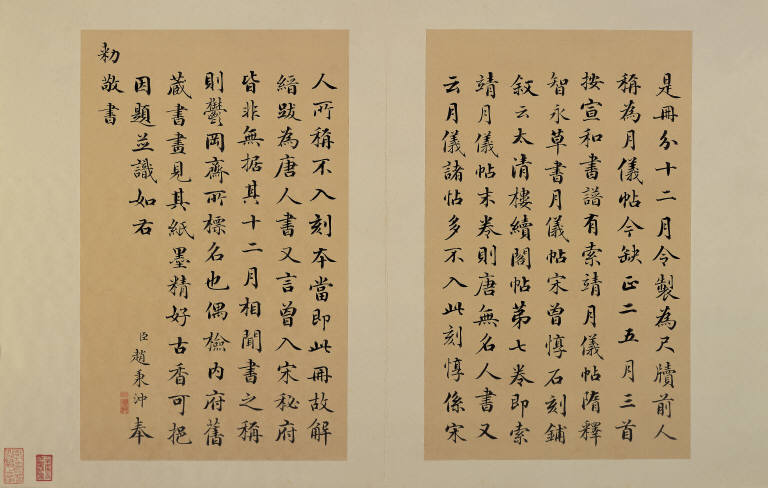 是冊分十二月令製為尺牘前人
稱為月儀帖今缺正二五月三首
按宣和書譜有索靖月儀帖隋釋
智永草書月儀帖宋曾惇石刻鋪
敘云太清樓續閣帖第七卷即索
靖月儀帖末卷則唐無名人書又
云月儀諸帖多不入此刻惇係宋
人所稱不入刻本當即此冊故解
縉跋為唐人書又言曾入宋秘府
皆非無据其十二月相聞書之稱
則鬱岡齋所標名也偶檢內府舊
藏書畫見其紙墨精好古香可挹
因題並識如右
臣趙秉沖奉
勅敬書